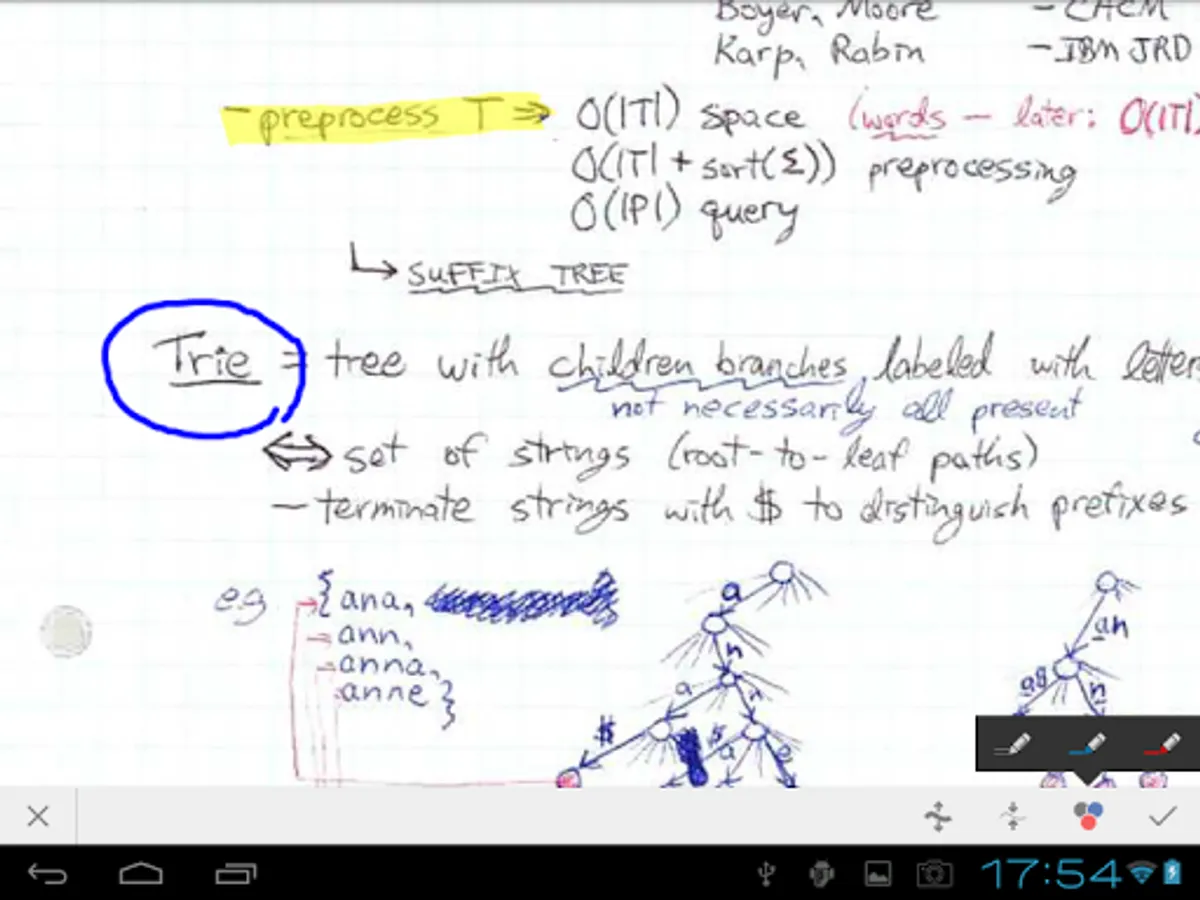 Boyer, Moore - CACM
Karp, Rabin - IBM JRD
- preprocess T ⇒ O(|T|) space (words - later: O(|T|)
O(|T| + sort(Σ)) preprocessing
O(|P|) query
↳ SUFFIX TREE
Trie = tree with children branches labeled with letters
not necessarily all present
⇔ set of strings (root-to-leaf paths)
- terminate strings with $ to distinguish prefixes
e.g. {ana,
ann,
anna,
anne}
a
n
a n
$ $ a e
an
a$ n
17:54